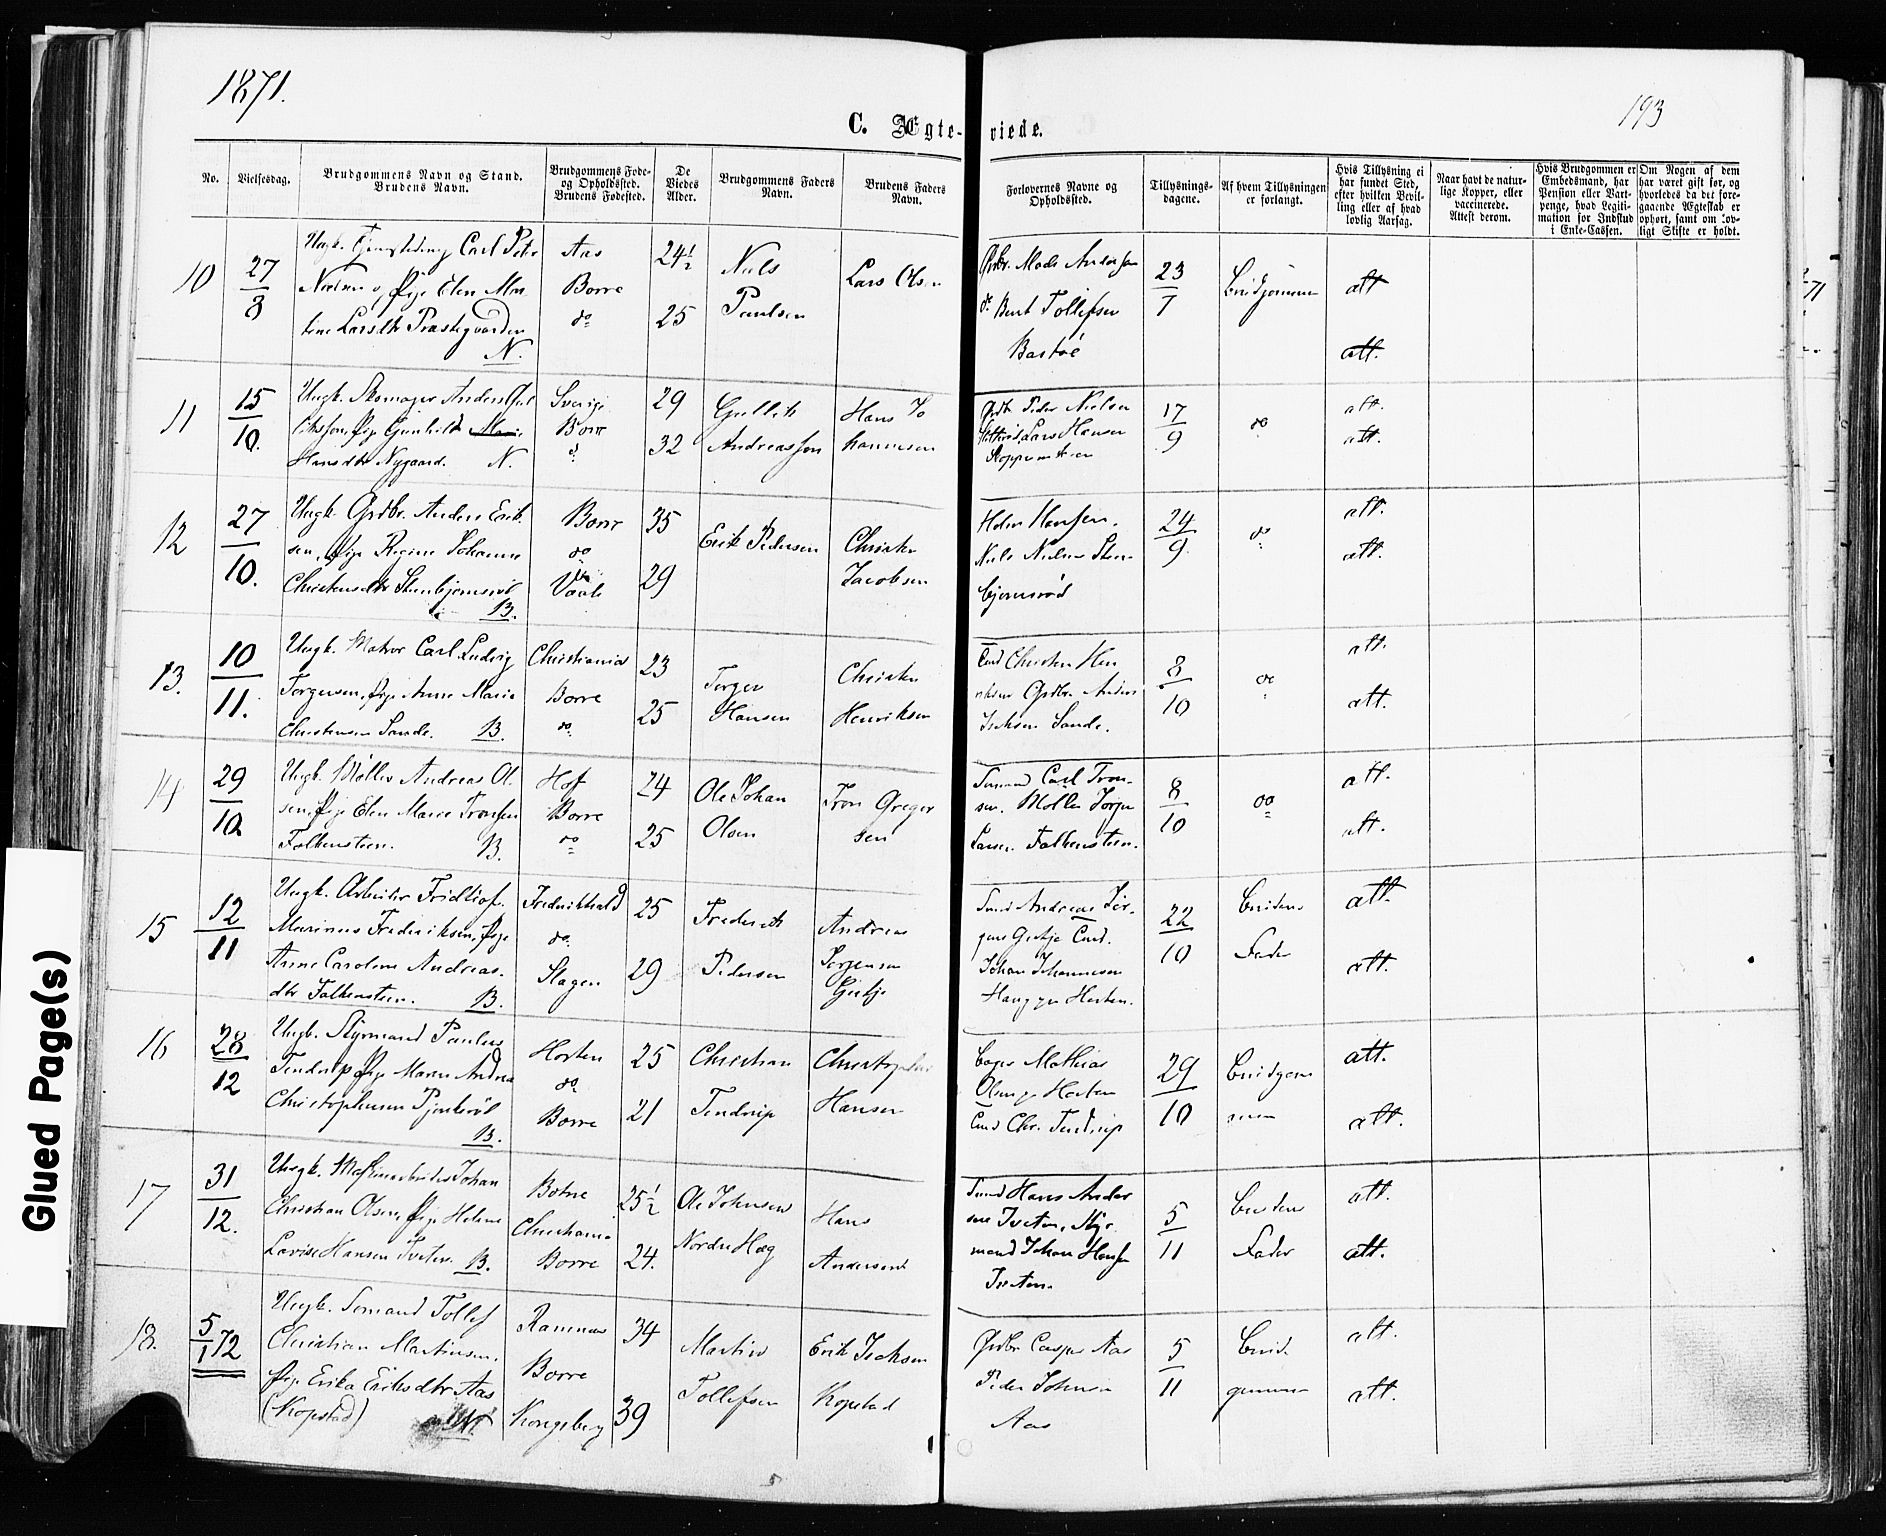 1871.
193
C. Ægte-viede.
No.
Vielsesdag.
Brudgommens Navn og Stand.
Brudens Navn.
Brudgommens Føde-
og Opholdssted.
Brudens Fødested.
De
Viedes
Alder.
Brudgommens Faders
Navn.
Brudens Faders
Navn.
Forlovernes Navne og
Opholdssted.
Tillysnings-
dagene.
Af hvem Tillysningen
er forlangt.
Hvis Tillysning ei
har fundet Sted,
efter hvilken Bevil-
ling eller af hvad
lovlig Aarsag.
Naar havt de natur-
lige Kopper, eller
vaccinerede.
Attest derom.
Hvis Brudgommen er
Embedsmand, har
Pension eller Vart-
penge, hvad Legiti-
mation for Indskud
i Enke-Cassen.
Om Nogen af dem
har været gift før, og
hvorledes da det fore-
gaaende Ægteskab er
ophørt, samt om lov-
ligt Skifte er holdt.
10
27/8
Ungk. Carl Peter
Nielsen, Pige Elen Mar
tine Larsdtr Præstegaarden
N.
Aas
Borre
do
24½
25
Niels
Paulsen
Lars Olsen
Grdbr. Mads Andersen
do Bent Tollefsen
Bastøe
23/7
Brudgommen
att
att.
11
15/10.
Ungk. Skomager Anders Gul
liksson, Pige Gunhild Marie
Hansdtr Nygaard. N.
Sverige
Borre
d:
29
32
Gullik
Andreasson
Hans Jo
hannesen
Grdbr Peder Nielsen
Lars Hansen
17/9
do
att.
att.
12
27/10.
Ungk. Grdbr. Anders Erik
sen, Pige Regine Johanne
Christensdtr Steenbjørnsrød
B.
Borre
do
Vaale
35
29
Erik Pedersen
Christen
Jacobsen
Hansen.
Niels Nielsen Sten
bjørnsrød
24/9.
do
att.
att.
13.
10/11.
Ungk. Matros Carl Ludvig
Torgersen, Pige Anne Marie
Christensen Sande. B.
Christiania
Borre
do.
23
25
Torger
Hansen
Christen
Henriksen
Christen Hen
riksen Grdbr. Anders
Isaksen Sande.
8/10
do
att.
att.
14
29/10
Ungk. Møller Andreas Ol
sen, Pige Elen Marie Tronsen
Falkensteen. B.
Hof
Borre
do
24
25
Ole Johan
Olsen
Tron Greger
sen
Carl Tron
sen. Møller Jørgen
Larsen Falkensteen.
8/10
do
att.
att.
15
12/11
Ungk. Arbeider Fridtjof
Marinius Frederiksen, Pige
Anne Caroline Andreas-
dtr Falkensteen. B.
Fredrikshald
do.
Slagen
25
29
Frederik
Pedersen
Andreas
Jørgensen
Andreas Jør-
Johan Johannesen
Horten.
22/10
Brudens
Fader
att.
att.
16
28/12
Ungk. Styrmand Paulus
Tendrup Pige Maren Andrea
Christophersen
B.
Horten
do
Borre
25
21
Christian
Tendrup
Christopher
Hansen
Mathias
Horten
Chr. Tendrup
29/10
Brudgom
men
att.
att.
17
31/12.
Ungk. Maskinarbeider Johan
Christian Olsen, Pige Helene
Lovise Hansen Tveten. B.
Botne
Christiania
Borre
25½
24.
Ole Johnsen
Nordre Hag
Hans
Andersen
Hans Ander
sen Tveten, Styr
mand Johan Hansen
Tveten.
5/11
Brudens
Fader
att.
att.
18.
5/1 72
Ungk. Sømand Tollef
Christian Martinsen.
Pige Erika Eriksdtr Aas
(Kopstad) N.
Ramnæs
Borre
Kongsberg
34
39
Martin
Tollefsen
Erik Isaksen
Kopstad
Grdbr Casper Aas
Peder
Aas
5/11
Brud
gommen
att.
att.
Glued Page(s)